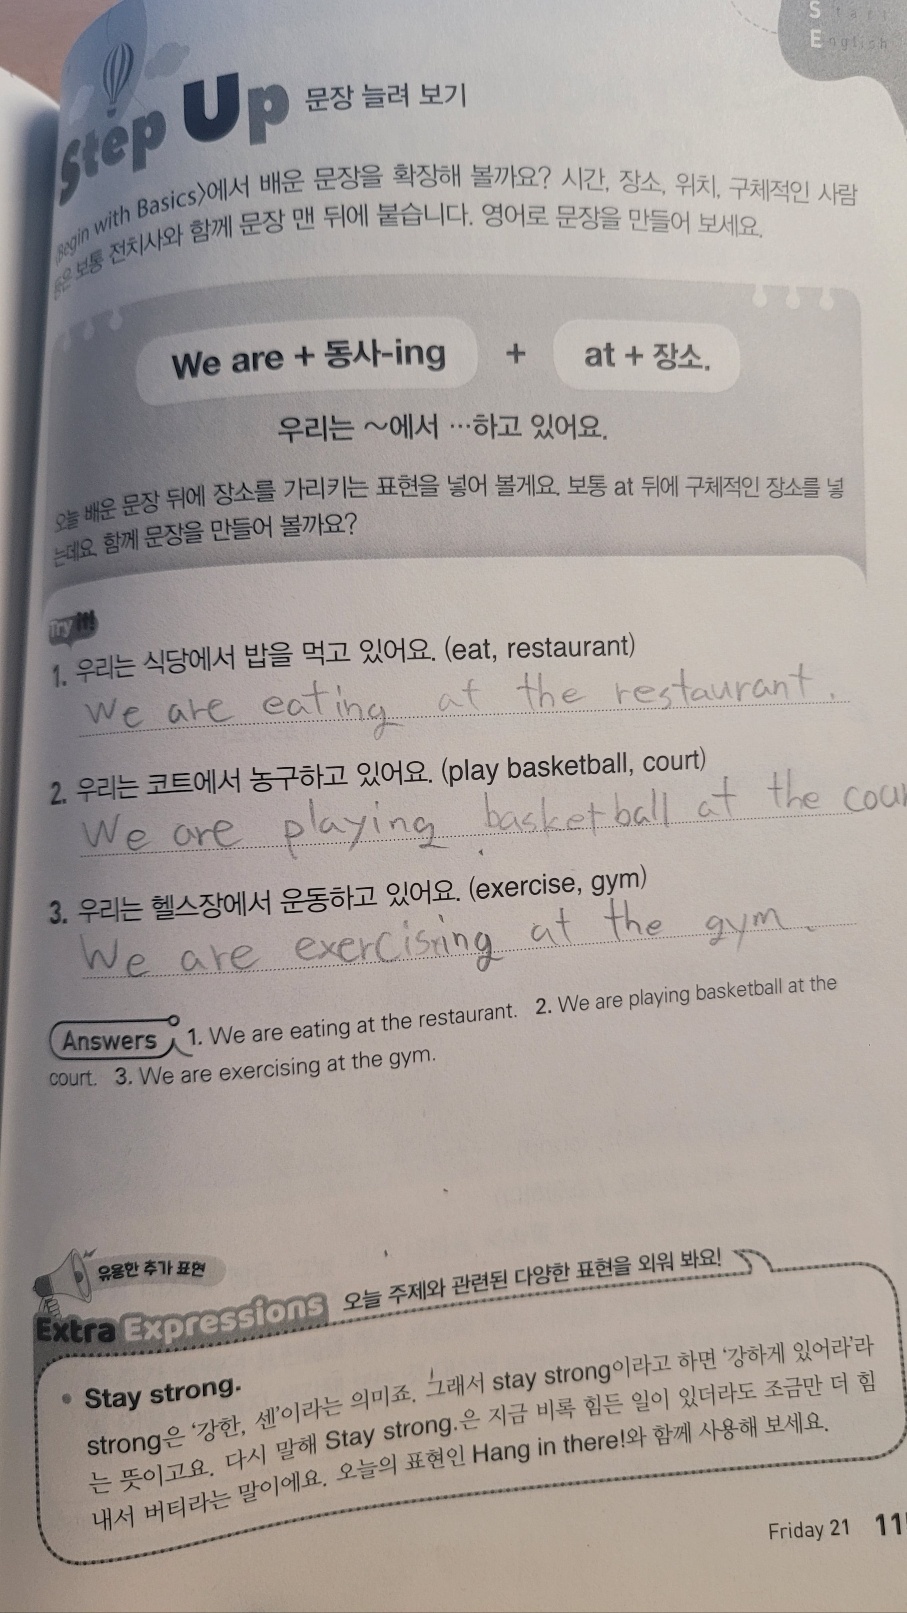 S tart
English
Step Up 문장 늘려 보기
〈Begin with Basics〉에서 배운 문장을 확장해 볼까요? 시간, 장소, 위치, 구체적인 사람
등은 보통 전치사와 함께 문장 맨 뒤에 붙습니다. 영어로 문장을 만들어 보세요.
We are + 동사-ing + at + 장소.
우리는 ~에서 …하고 있어요.
오늘 배운 문장 뒤에 장소를 가리키는 표현을 넣어 볼게요. 보통 at 뒤에 구체적인 장소를 넣
는데요. 함께 문장을 만들어 볼까요?
Try it!
1. 우리는 식당에서 밥을 먹고 있어요. (eat, restaurant)
We are eating at the restaurant.
2. 우리는 코트에서 농구하고 있어요. (play basketball, court)
We are playing basketball at the cour
3. 우리는 헬스장에서 운동하고 있어요. (exercise, gym)
We are exercising at the gym.
Answers 1. We are eating at the restaurant. 2. We are playing basketball at the
court. 3. We are exercising at the gym.
유용한 추가 표현
Extra Expressions 오늘 주제와 관련된 다양한 표현을 외워 봐요!
• Stay strong.
strong은 ‘강한, 센’이라는 의미죠. 그래서 stay strong이라고 하면 ‘강하게 있어라’라
는 뜻이고요. 다시 말해 Stay strong.은 지금 비록 힘든 일이 있더라도 조금만 더 힘
내서 버티라는 말이에요. 오늘의 표현인 Hang in there!와 함께 사용해 보세요.
Friday 21